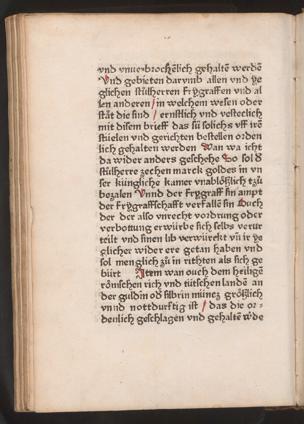 vnd vnuerbrochēlich gehaltē werdē
Vnd gebieten darumb allen vnd ye
glichen stülherren frygraffen vnd al
len anderen / in welchem wesen oder
stät die sind / ernstlich vnd vesteclich
mit disem brieff das sü solichs vff irē
stüelen vnd gerichten bestellen orden
lich gehalten werden Wan wa icht
da wider anders geschehe So sol ď
stülherre zechen marck goldes in vn
ser küngliche kamer vnablößlich tzů
bezalen Vnnd der frygraff sin ampt
der frygraffschafft verfallē sin Ouch
der der also vnrecht vordrung oder
verbottung erwürbe sich selbs verur
teilt vnd sinen lib verwürckt vñ ir ye
glicher wider ere getan haben vnd
sol menglich zů in rithten als sich ge
bürt Item wan ouch dem heiligē
römschen rich vnd tütschen landē an
der guldin oď silbrin müncz größlich
vnnd nottdurftig ist / das die or-
denlich geschlagen vnd gehaltē ẘde